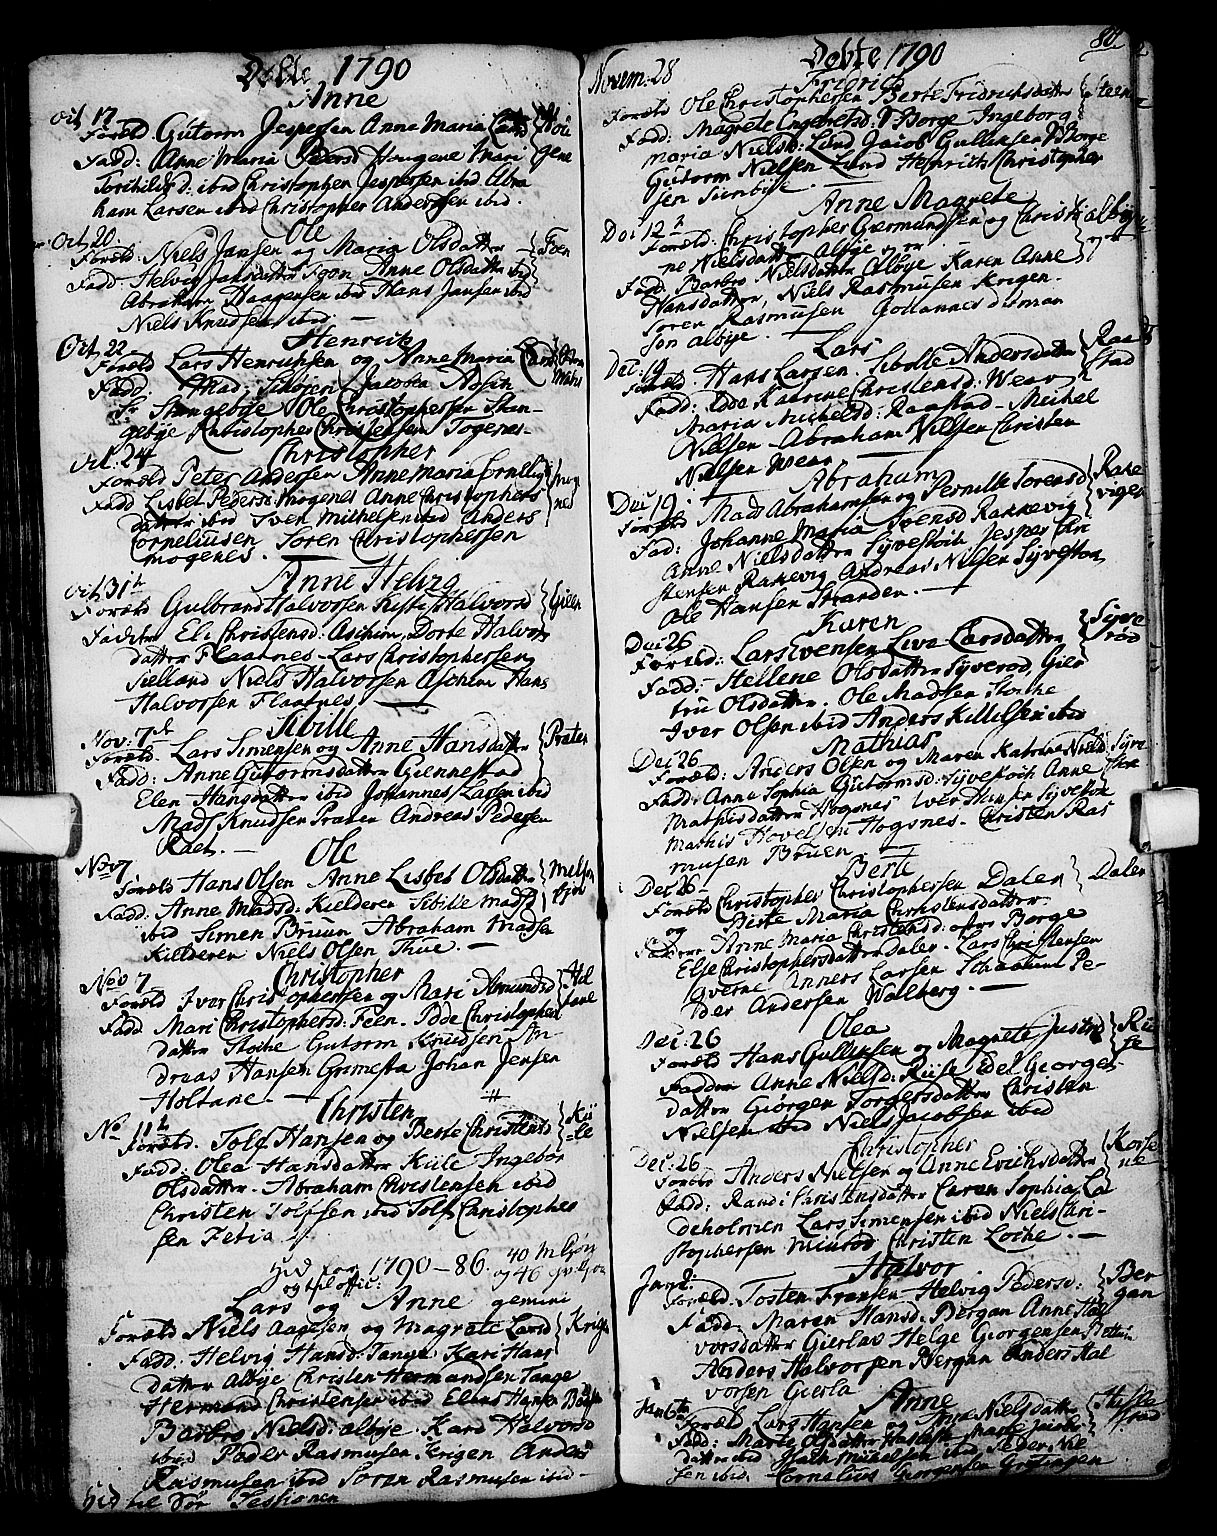 Døbte 1790
Anne
Oct 17
Foræld. Gutorm Jespersen Anne Maria
Fadd: Anne Maria Pedersd Haugene Mari
Torchildsd: ibid Christopher Jespersen ibid Abra
ham Larsen ibid Christopher Andersen ibid.
Ole
Oct 20
Foræld. Niels Jansen og Maria Olsdatter Foen
Fadd: Helvig Jansdatter Foen Anne Olsdatter ibid
Abraham Haagensen ibid Hans Jansen ibid
Niels Knudsen ibid
Henrich
Oct 22
Foræld Lars Henrichsen og Anne Maria
Fadd Mad: Jacobea
Fr Stangebye Ole Christophersen Stan-
gebye Christopher Christensen
Christopher
Oct. 24
Foræld Peter Andersen Anne Maria Cornelii
Fadd Lisbet Pedersd: Mogenes Anne Christophers
datter ibid Sven Michelsen ibid Anders
Corneliusen Søren Christophersen
Mogenes.
Anne Helvig
Oct 31
Foræld Gulbrand Halvorsen Kisti Halvorsd
Faddere Eli Christensd. Aschim, Dorte Halvors
datter Flaatnes Lars Christophersen
Sielland Niels Halvorsen Aschim Hans
Halvorsen Flaatnes
Sibille
Nov: 7
Foræld. Lars Simensen og Anne Hansdatter Præten
Fadd: Anne Gutormsdatter Giennestad
Elen Hansdatter ibid Johannes Larsen ibid
Mads Knudsen Præten Andreas Pedersen
Raet.
Ole
Nov 7
Foræld Hans Olsen Anne Lisbet Olsdatter
Fadd: Anne Madsd: Kielderen Sibille Madsd
ibid Simen Bruun Abraham Madsen
Kielderen Niels Olsen Thue
Christopher
Nov 7
Foræld Iver Christophersen og Mari Amundsd Holtane
Fadd Mari Christophersd: Feen. Idde Christophers
datter Stoche Gutorm Knudsen An-
dreas Hansen Grimestad Johan Jensen
Holtane
Christen
No 11
Foræld. Tolf Hansen og Berte Christensd Kiile
Fadd: Olea Hansdatter Kiile Ingebor
Olsdatter Abraham Christensen ibid
Christen Tolfsen ibid Tolf Christopher
sen Fetia
1790 - 86. 40
og 46
Lars og Anne gemini
Foræld Niels Aagesen og Magrete Larsd Krigen
Fadd: Helvig Hansd: Tange Kari Hans
datter Albye Christen Hermandsen Tange
Hermand Christensen ibid Elias Hansen
Barbro Nielsd: Albye. Kari Halvorsd
ibid Peder Rasmusen Krigen Anders
Rasmusen ibid Søren Rasmusen ibid

Døbte 1790
80.
Novem: 28
Fridrich
Foræld Ole Christophersen Berte Fridrichsdatter
Fadd: Magrete Borge Ingeborg
Maria Nielsd: Lund Jacob Gullichsen Borge
Gutorm Nielsen Lund Henrich Christopher
sen Sundbye
Anne Magrete
Dec 12
Foræld. Christopher Giermundsen og Christi Albye
ne Nielsdatter Albye
Fadd. Barbro Nielsdatter Albye Karen Anne
Hansdatter, Niels Rasmusen Krigen.
Søren Rasmusen Johannes Disman
sen Albye.
Lars
Dec: 19
Foræld. Hans Larsen. Sibille Andersdatter Raastad
Fadd: Idde Katrine Christensd: Wear
Maria Michelsd: Raastad Michel
Nielsen Abraham Nielsen Christen
Nielsen Wear
Abraham
Dec: 19
Foræld Mads Abrahamsen og Pernille Sørensd Rakkevigen
Fad: Johanne Maria Svensd Rakkevig
Anne Nielsdatter Syvestoch Jesper An
stensen Rakkevig Andreas Nielsen Syvestok
Ole Hansen Stranden.
Karen
Dec: 26
Foræld: Lars Svensen Live Larsdatter Syverød
Fadd: Hellene Olsdatter Syverød, Giær
tru Olsdatter. Ole Madsen Stoche
Iver Olsen ibid Anders Killelsen ibid
Mathias
Dec 26
Foræld: Anders Olsen og Maren Katrine Nielsd
Fadd: Anne Sophia Gutormsd: Syvestoch Anne
Mathisdatter Hogsnes Iver Hansen Syvestok
Mathis Hovelsen Hogsnes. Christen Ras
musen Bruen
Berte
Dec 26
Foræld Christopher Christophersen Dalen Dalen
og Birte Maria Christensdatter
Anne Maria Christensd: Borge
Else Christophersdatter Dalen. Lars Christensen
Anners Larsen Schaanum Pe-
der Andersen Walberg.
Olea
Dec: 26
Foræld Hans Gullichsen og Magrete Justsd Ruse
Faddere Anne Nielsd: Riise Edel Georges
datter Giørgen Torgersdatter Christen
Nielsen ibid Niels Jacobsen ibid
Christopher
Dec: 26
Foræld Anders Nielsen og Anne Erichsdatter
Fadd: Randi Christensdatter Caren Sophia La
deholmen Lars Simensen ibid Niels Cri-
stophersen Christen Loche.
Halvor
Jan 2:
Foræld. Tosten Fransen Helvig Pedersd: Bergan
Fadd. Maren Hansd: Bergan Anne Hal
vorsdatter Gierløv Helge Giorgensen
Anders Halvorsen Bergan Anders Hal
vorsen Gierlø
Anne
Jan 6
Foræld Lars Hansen og Anne Nielsdatter
Fadd: Marte Olsdatter
datter ibid Michelsen ibid Peder Niel
sen ibid. Cornelius Giorgensen